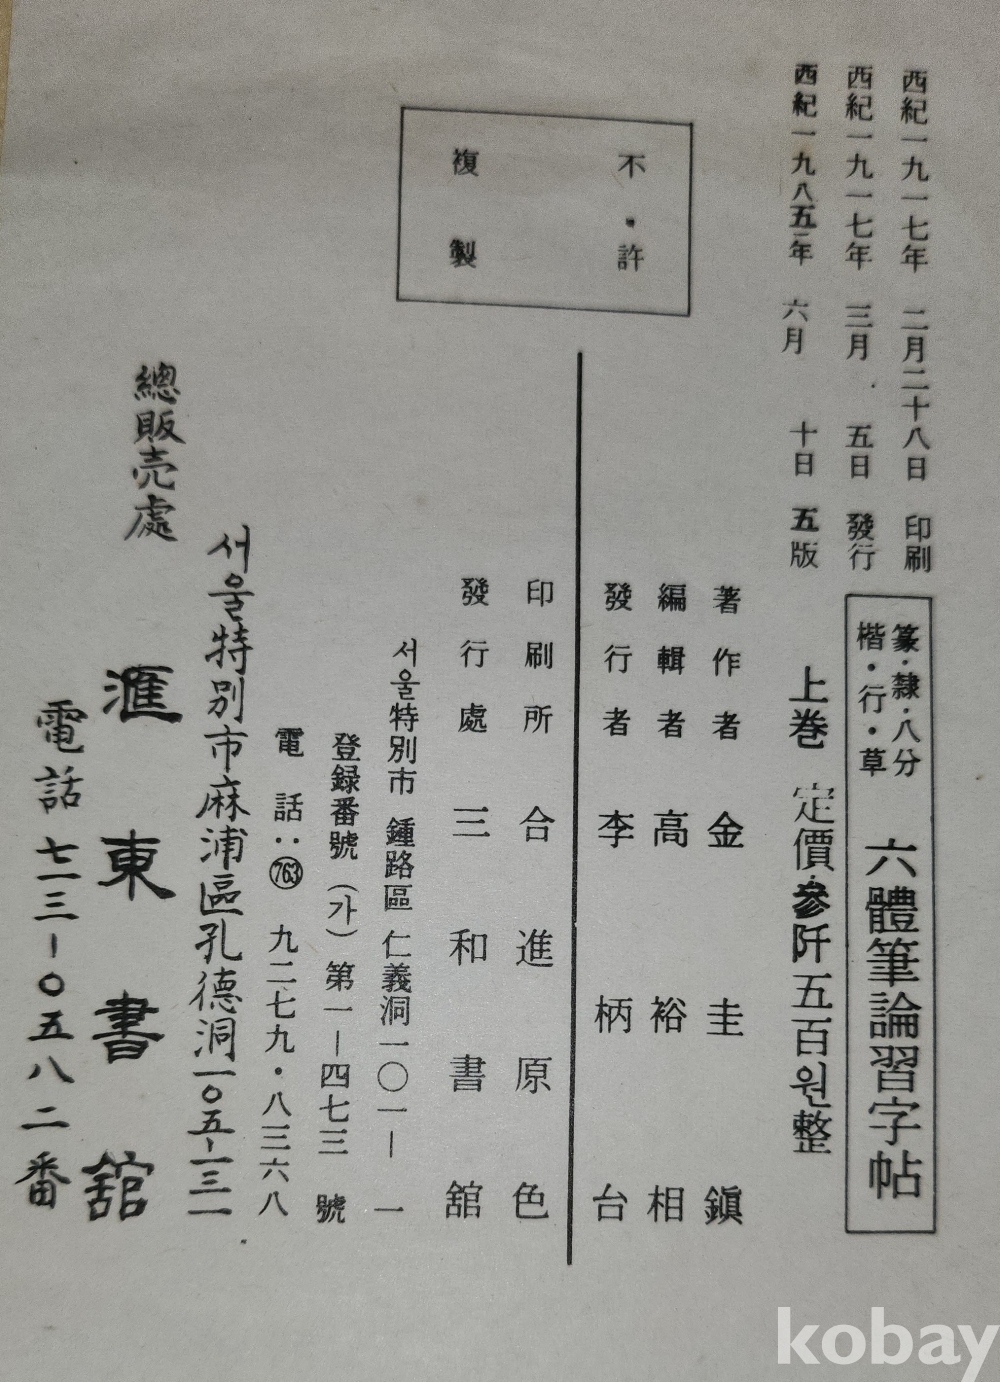 西紀一九一七年 二月二十八日 印刷
西紀一九一七年 三月 五日 發行
西紀一九八五年 六月 十日 五版
篆·隸·八分
楷·行·草
六體筆論習字帖
上巻 定價 參阡五百원整
不許
複製
著作者 金圭鎭
編輯者 高裕相
發行者 李柄台
印刷所 合進原色
發行處 三和書舘
서울特別市 鍾路區 仁義洞 一〇一—一
登録番號 (가) 第一—四七三 號
電話:763 九二七九·八三六八
總販売處
서울特別市麻浦區孔德洞一〇五-一三一
滙東書舘
電話 七一三-〇五八二番
kobay